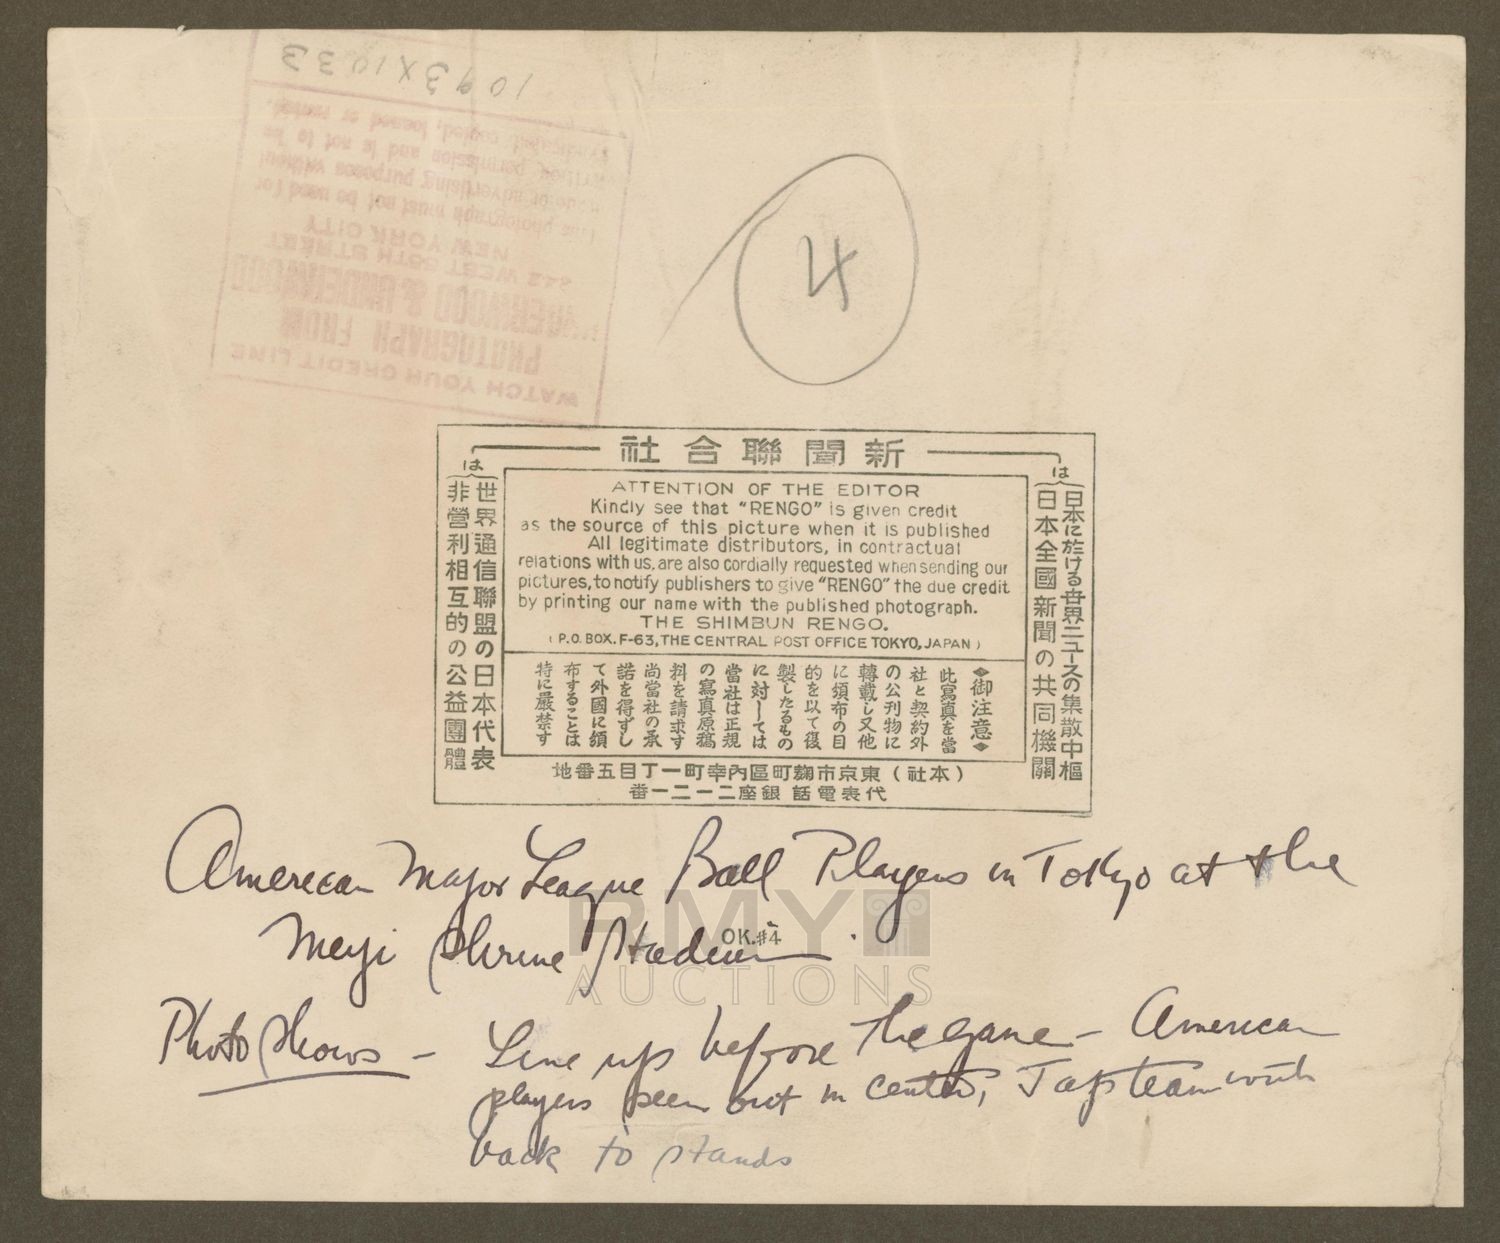 1093X1033
written permission and is not to be
made or advertising purposes without
This photograph must not be used for
NEW YORK CITY
242 WEST 55TH STREET
UNDERWOOD & UNDERWOOD
PHOTOGRAPH FROM
WATCH YOUR CREDIT LINE
4
新聞聯合社
は
日本に於ける世界ニュースの集散中樞
日本全國新聞の共同機關
は
世界通信聯盟の日本代表
非營利相互的の公益團體
ATTENTION OF THE EDITOR
Kindly see that "RENGO" is given credit
as the source of this picture when it is published
All legitimate distributors, in contractual
relations with us, are also cordially requested when sending our
pictures, to notify publishers to give "RENGO" the due credit
by printing our name with the published photograph.
THE SHIMBUN RENGO.
(P.O. BOX. F-63, THE CENTRAL POST OFFICE TOKYO, JAPAN)
◆御注意◆
此寫眞を當
社と契約外
の公刊物に
轉載し又他
に頒布の目
的を以て復
製したるもの
に對しては
當社は正規
の寫眞原稿
料を請求す
尚當社の承
諾を得ずし
て外國に頒
布することは
特に嚴禁す
(本社)東京市麴町區內幸町一丁目五番地
代表電話銀座二一二一番
American Major League Ball Players in Tokyo at the
Meiji Shrine Stadium.
OK.#4
RMY
AUCTIONS
Photo Shows - Line up before the game - American
players seen out in center, Jap team with
back to stands